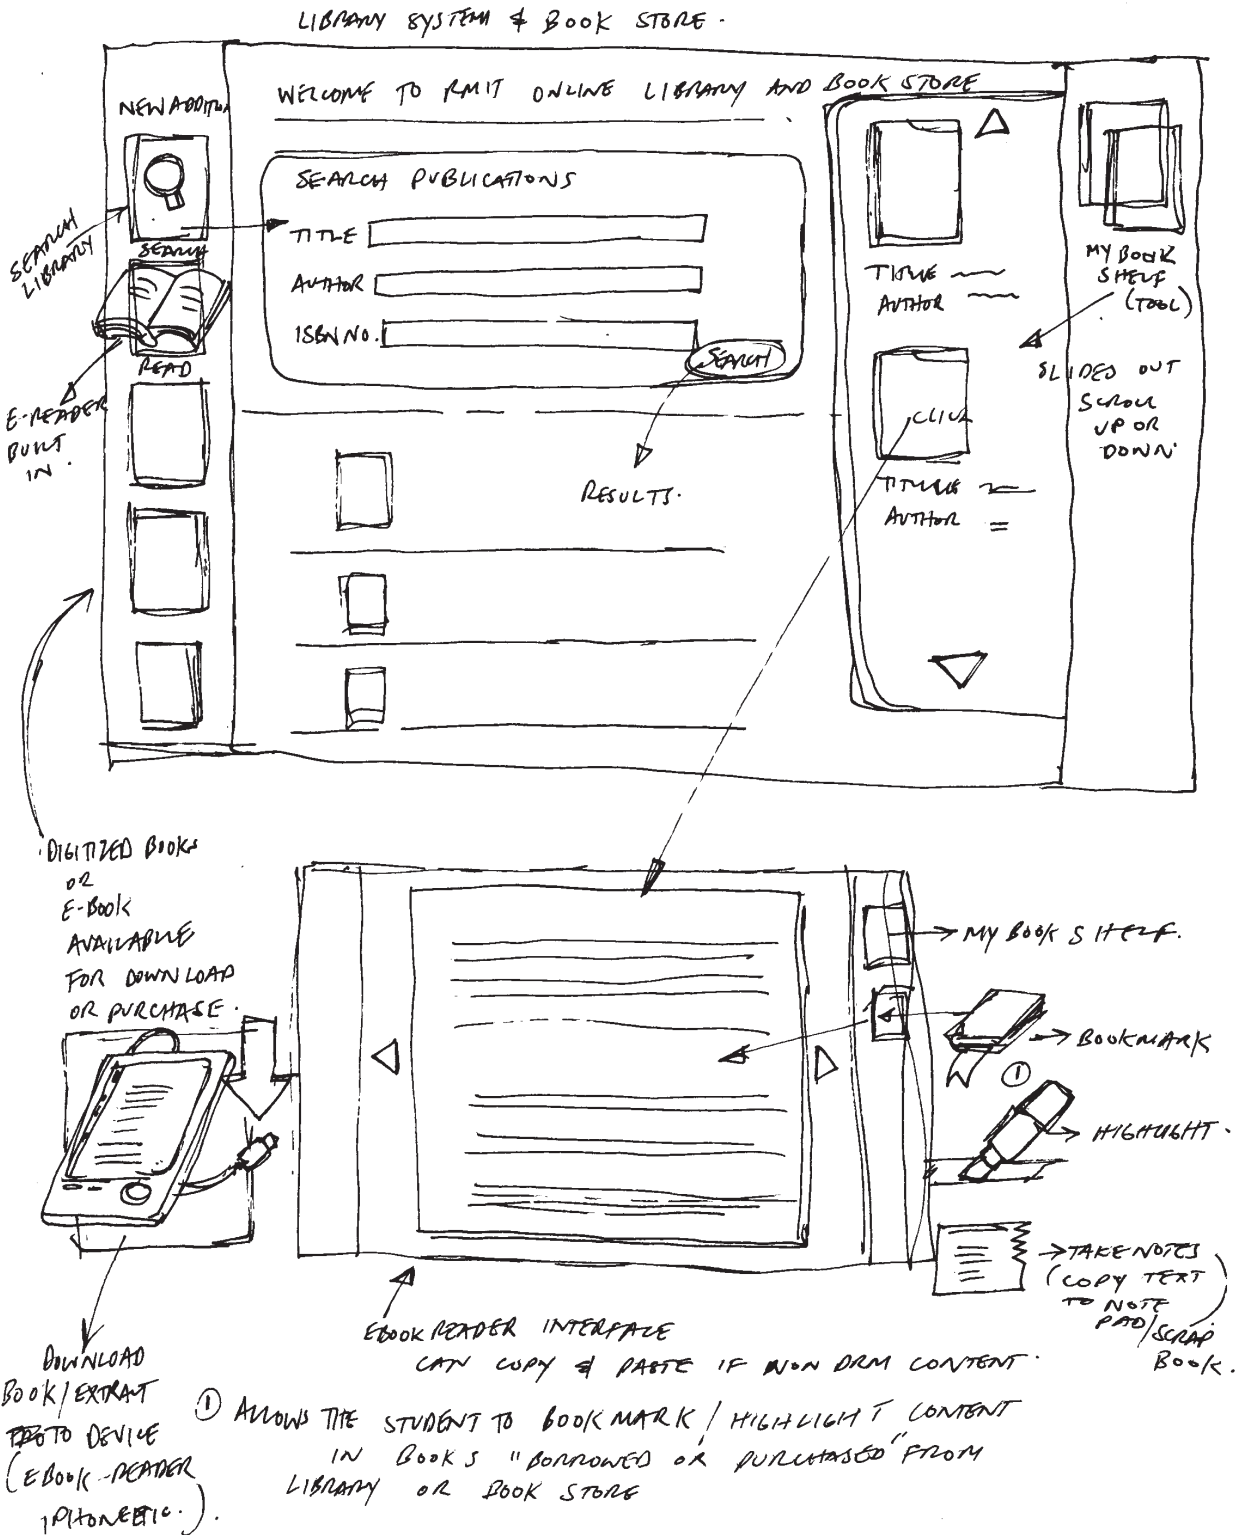 LIBRARY SYSTEM & BOOK STORE.
WELCOME TO RMIT ONLINE LIBRARY AND BOOK STORE
NEW ADDITION
SEARCH
LIBRARY
SEARCH
READ
E-READER
BUILT
IN.
SEARCH PUBLICATIONS
TITLE
AUTHOR
ISBN NO.
SEARCH
RESULTS.
TITLE
AUTHOR
CLICK
TITLE
AUTHOR
MY BOOK
SHELF
(TOOL)
SLIDES OUT
SCROLL
UP OR
DOWN
DIGITIZED BOOKS
OR
E-BOOK
AVAILABLE
FOR DOWNLOAD
OR PURCHASE.
MY BOOK SHELF.
BOOKMARK
1
HIGHLIGHT.
TAKE NOTES
(COPY TEXT
TO NOTE
PAD/SCRAP
BOOK.
EBOOK READER INTERFACE
CAN COPY & PASTE IF NON DRM CONTENT.
DOWNLOAD
BOOK/EXTRACT
TO DEVICE
(EBOOK-READER
IPHONE ETC.).
1 ALLOWS THE STUDENT TO BOOKMARK/HIGHLIGHT CONTENT
IN BOOKS "BORROWED OR PURCHASED" FROM
LIBRARY OR BOOK STORE